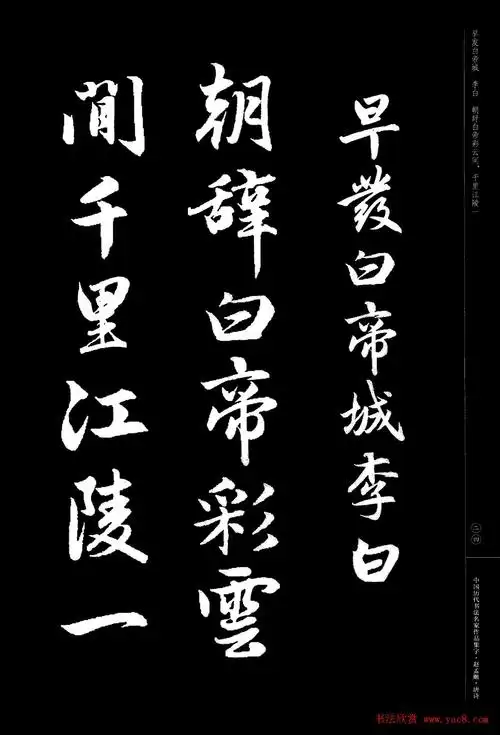 早發白帝城李白
朝辭白帝彩雲
間千里江陵一
早发白帝城 李白 朝辞白帝彩云间，千里江陵一
二四
中国历代书法名家作品集字·赵孟頫·唐诗
书法欣赏 www.yac8.com